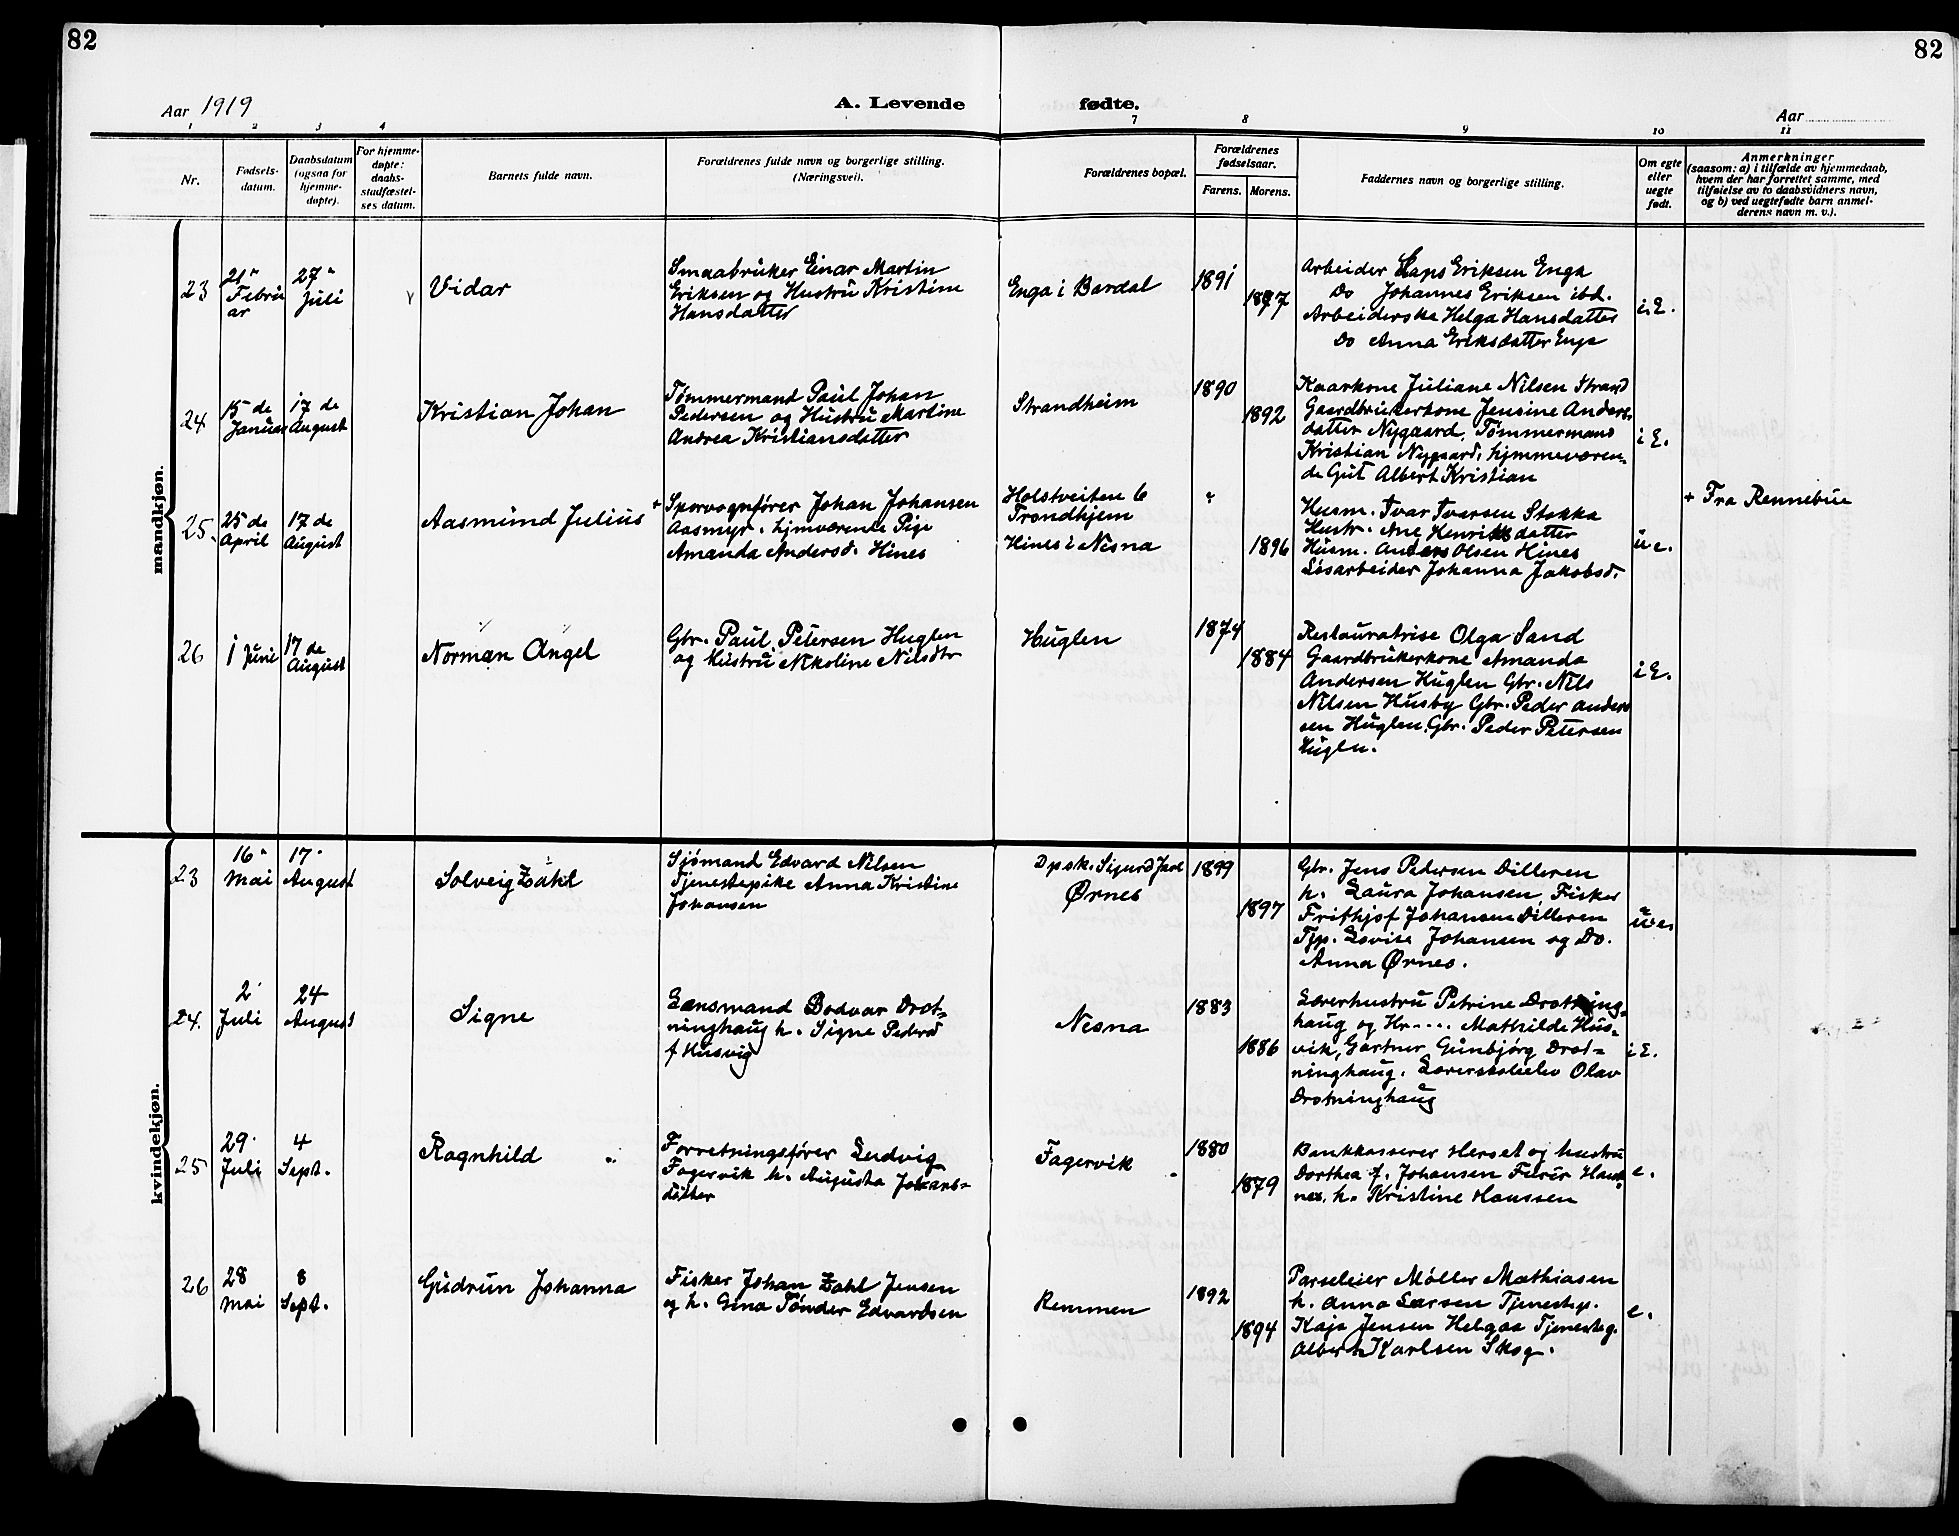 82
82
Aar 1919
A. Levende fødte.
Aar
1 2 3 4 7 8 9 10 11
Nr.
Fødsels-
datum.
Daabsdatum
(ogsaa for
hjemme-
døpte).
For hjemme-
døpte:
daabs-
stadfæstel-
ses datum.
Barnets fulde navn.
Forældrenes fulde navn og borgerlige stilling.
(Næringsvei).
Forældrenes bopæl.
Forældrenes
fødselsaar.
Farens. Morens.
Faddernes navn og borgerlige stilling.
Om egte
eller
uegte
født.
Anmerkninger
(saasom: a) i tilfælde av hjemmedaab,
hvem der har forrettet samme, med
tilføielse av to daabsvidners navn,
og b) ved uegtefødte barn anmel-
derens navn m. v.).
mandkjøn.
23
21"
Febru
ar
27"
Juli
Vidar
Smaabruker Einar Martin
Eriksen og Hustru Kristine
Hansdatter
Enga i Bardal
1891
1897
Arbeider Eriksen Enga
Do Johannes Eriksen ibd.
Arbeiderske Helga Hansdatter
Do Anna Eriksdatter Enga
i E.
24
15 de
Januar
17 de
August
Kristian Johan
Tømmermand Paul Johan
Pedersen og Hustru Martine
Andrea Kristiansdatter
Strandheim
1890
1892
Kaarkone Juliane Nilsen Strand
Gaardbrukerkone Jensine Anders
datter Nygaard, Tømmermand
Kristian Nygaard, hjemmeværen-
de Gut Albert Kristian
i E.
25.
25 de
April
17 de
August
Aasmund Julius
+ Sporvognfører Johan Johansen
Aasmyr. hjmværende Pige
Amanda Andersd. Hines
Holstveiten 6
Trondhjem
Hines i Nesna
"
1896
Husm. Ivar Ivarsen Stokka
Hustr. Ane Henriksdatter
Husm. Anders Olsen Hines
Løsarbeider Johanna Jakobsd.
u e.
+ Fra Rennebue
26
1 Juni
17 de
August
Norman Angel
Gbr. Paul Petersen Huglen
og Hustru Nikoline Nilsdtr
Huglen
1874
1884
Restauratrise Olga Sand
Gaardbrukerkone Amanda
Andersen Huglen Gbr. Nils
Nilsen Husby Gbr. Peder Anders
sen Huglen. Gbr. Peder Petersen
Huglen.
i E.
kvindekjøn.
23
16"
Mai
17"
August
Solveig Zahl
Sjømand Edvard Nilsen
Tjenestepike Anna Kristine
Johansen
Dpsk. Sigurd Jarl
Ørnes
1899
1897
Gbr. Jens Pedersen Dilleren
h. Laura Johansen, Fisker
Frithjof Johansen Dilleren
Tjp. Lovise Johansen og Do.
Anna Ørnes.
u e.
24.
2
Juli
24
August
Signe
Lensmand Bodvar Drot-
ninghaug h. Signe Pedersd
f Husvig
Nesna
1883
1886
Lærerhustru Petrine Drotning-
haug og Hr. .... Mathilde Hus-
vik, Gartner Gunbjörg Drot-
ninghaug. Lærerskoleelev Olav
Drotninghaug
i E.
25
29
Juli
4
Sept.
Ragnhild
Forretningsfører Ludvig
Fagervik h. Augusta Johans-
datter
Fagervik
1880
1879
Bankkasserer Herset og hustru
Dorthea f. Johansen Furer
h. Kristine Hanssen
e.
26
28
Mai
8
Sept.
Gudrun Johanna
Fisker Johan Zahl Jensen
og h. Gina Tønder Edvardsen
Remmen
1892
1894
Parseleier Møller Mathiasen
h. Anna Larsen Tjenestep.
Kaja Jensen Helgaa Tjenesteg.
Albert Karlsen Skog.
e.